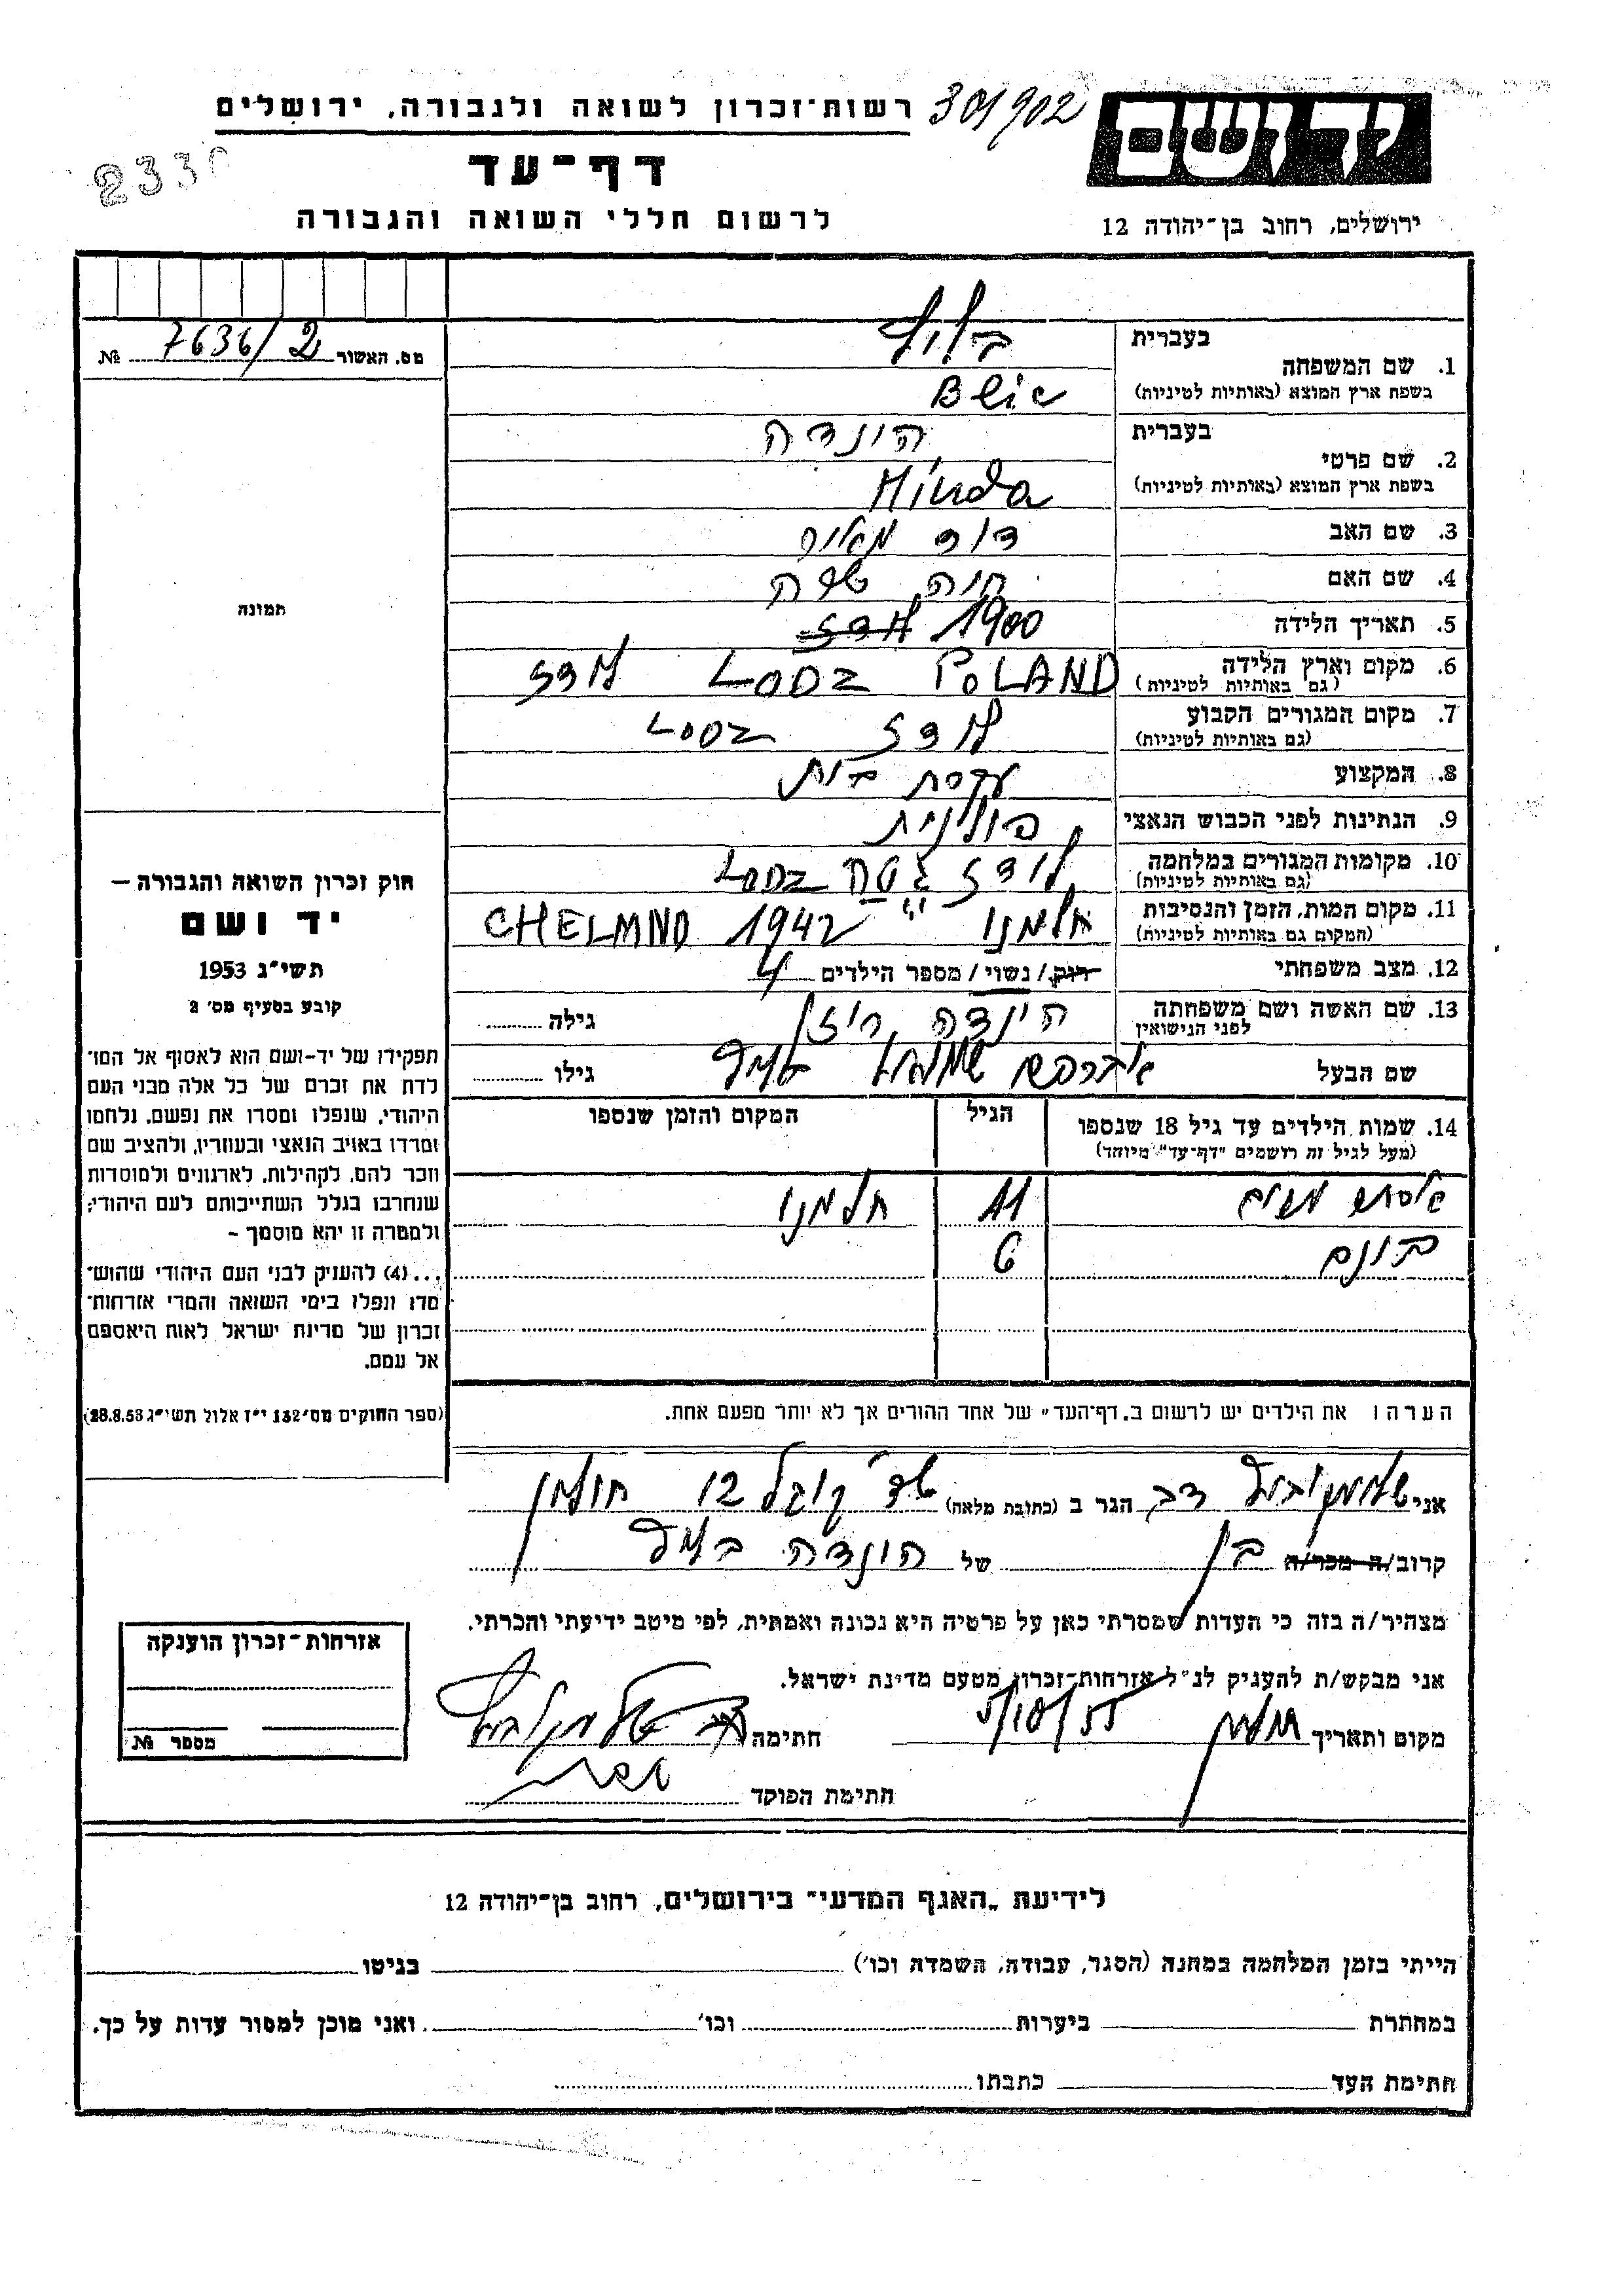 רשות־זכרון לשואה ולגבורה, ירושלים
301902
יד ושם
דף־עד
לרשום חללי השואה והגבורה
ירושלים, רחוב בן־יהודה 12
מס. האשור 7636/2 №
תמונה
בעברית
1. שם המשפחה
בשפת ארץ המוצא (באותיות לטיניות)
Blic
בעברית הינדה
2. שם פרטי
בשפת ארץ המוצא (באותיות לטיניות) Hinda
3. שם האב דוד מאיר
4. שם האם חנה
5. תאריך הלידה 1900
6. מקום וארץ הלידה POLAND LODZ לודז
(גם באותיות לטיניות)
7. מקום המגורים הקבוע לודז LODZ
(גם באותיות לטיניות)
8. המקצוע עקרת בית
9. הנתינות לפני הכבוש הנאצי פולנית
10. מקומות המגורים במלחמה לודז גיטו LODZ
(גם באותיות לטיניות)
11. מקום המות, הזמן והנסיבות חלמנו 1942 CHELMNO
(המקום גם באותיות לטיניות)
12. מצב משפחתי רווק/ נשוי/ מספר הילדים 4
13. שם האשה ושם משפחתה לפני הנישואין הינדה גילה
שם הבעל אברהם שמואל בליץ גילו
14. שמות הילדים עד גיל 18 שנספו הגיל המקום והזמן שנספו
(מעל לגיל זה רושמים "דף־עד" מיוחד)
11 חלמנו
בונם 6
הערה: את הילדים יש לרשום ב„דף־העד" של אחד ההורים אך לא יותר מפעם אחת.
חוק זכרון השואה והגבורה —
יד ושם
תשי״ג 1953
קובע בסעיף מס׳ 2
תפקידו של יד-ושם הוא לאסוף אל המו־
לדת את זכרם של כל אלה מבני העם
היהודי, שנפלו ומסרו את נפשם, נלחמו
ומרדו באויב הנאצי ובעוזריו, ולהציב שם
וזכר להם, לקהילות, לארגונים ולמוסדות
שנחרבו בגלל השתייכותם לעם היהודי;
ולמטרה זו יהא מוסמך –
...(4) להעניק לבני העם היהודי שהוש־
מדו ונפלו בימי השואה והמרי אזרחות־
זכרון של מדינת ישראל לאות היאספם
אל עמם.
(ספר החוקים מס׳ 132 י״ז אלול תשי״ג 28.8.53)
אני דב הגר ב (כתובת מלאה) 12 חולון
קרוב/ה מכר/ה בן של הינדה בליץ
מצהיר/ה בזה כי העדות שמסרתי כאן על פרטיה היא נכונה ואמתית, לפי מיטב ידיעתי והכרתי.
אני מבקש/ת להעניק לנ״ל אזרחות־זכרון מטעם מדינת ישראל.
מקום ותאריך חולון 5/10/55 חתימה
חתימת הפוקד
אזרחות־זכרון הוענקה
מספר №
לידיעת „האגף המדעי" בירושלים, רחוב בן־יהודה 12
הייתי בזמן המלחמה במחנה (הסגר, עבודה, השמדה וכו׳) בגיטו
במחתרת ביערות וכו׳ ואני מוכן למסור עדות על כך.
חתימת העד כתבתו